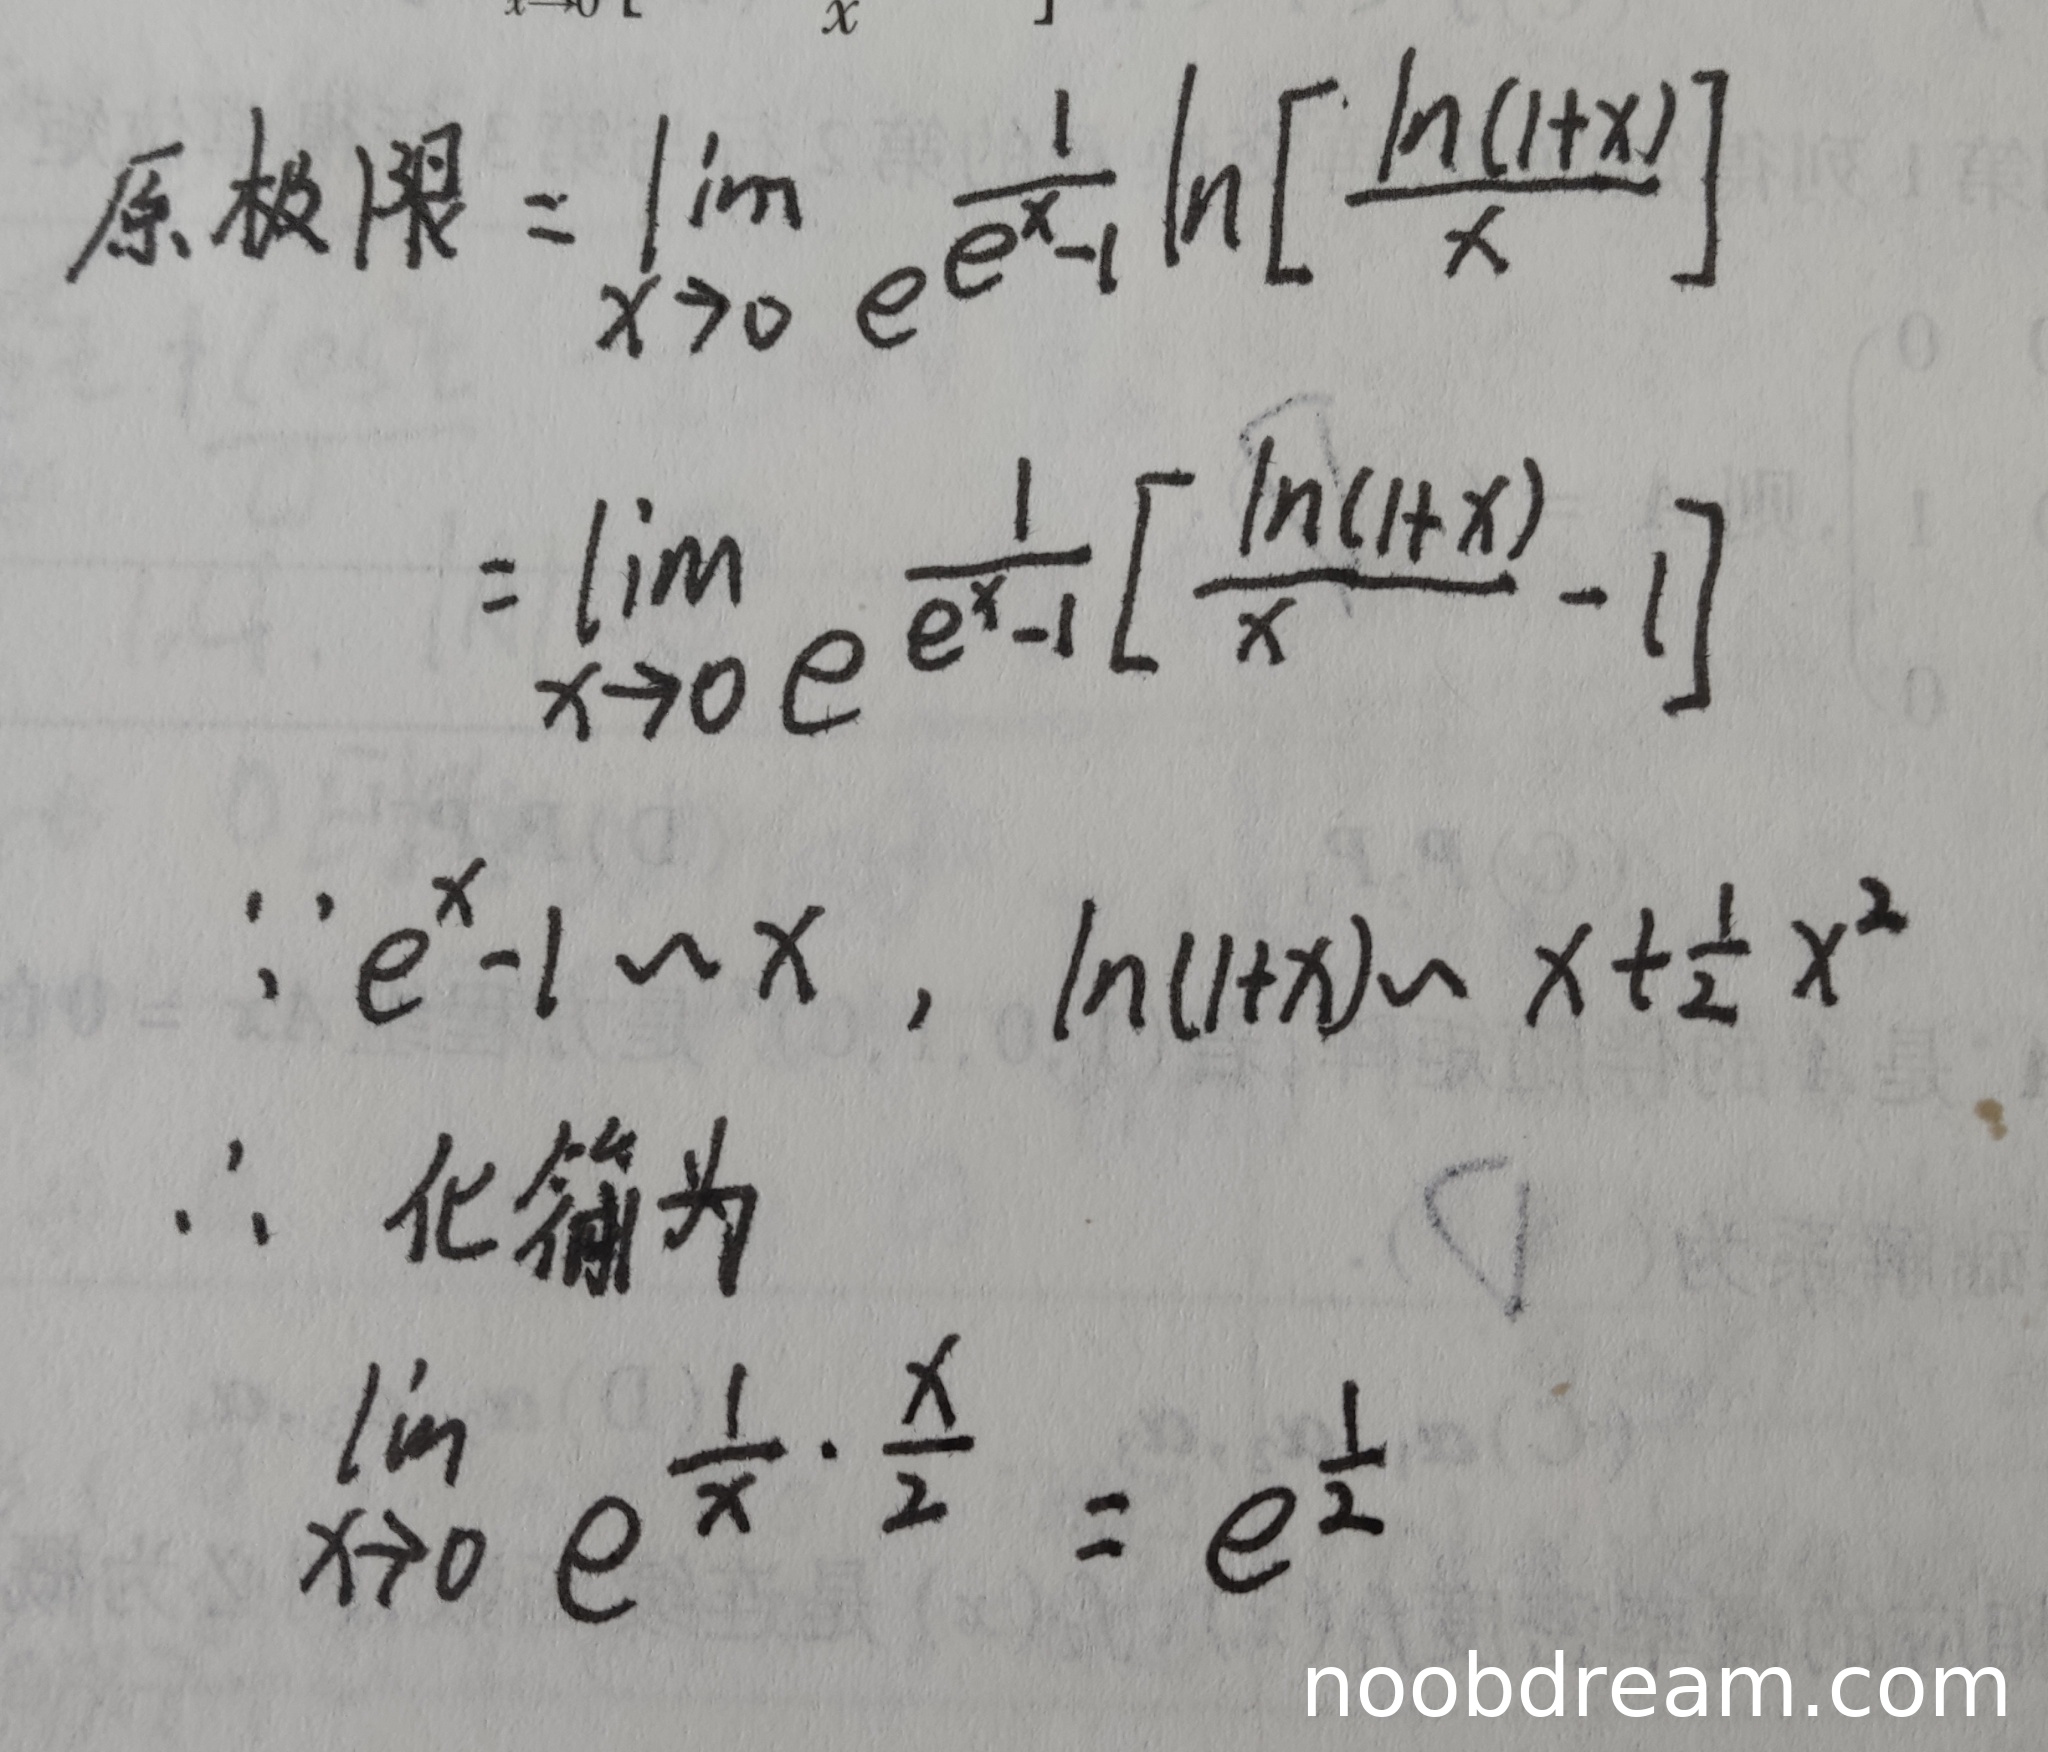 原极限 = lim x→0 e^{\frac{1}{e^x-1} ln[\frac{ln(1+x)}{x}]}
= lim x→0 e^{\frac{1}{e^x-1}[\frac{ln(1+x)}{x}-1]}
∵ e^x-1 ~ x , ln(1+x) ~ x+\frac{1}{2}x^2
∴ 化简为
lim x→0 e^{\frac{1}{x}·\frac{x}{2}} = e^{\frac{1}{2}}
noobdream.com